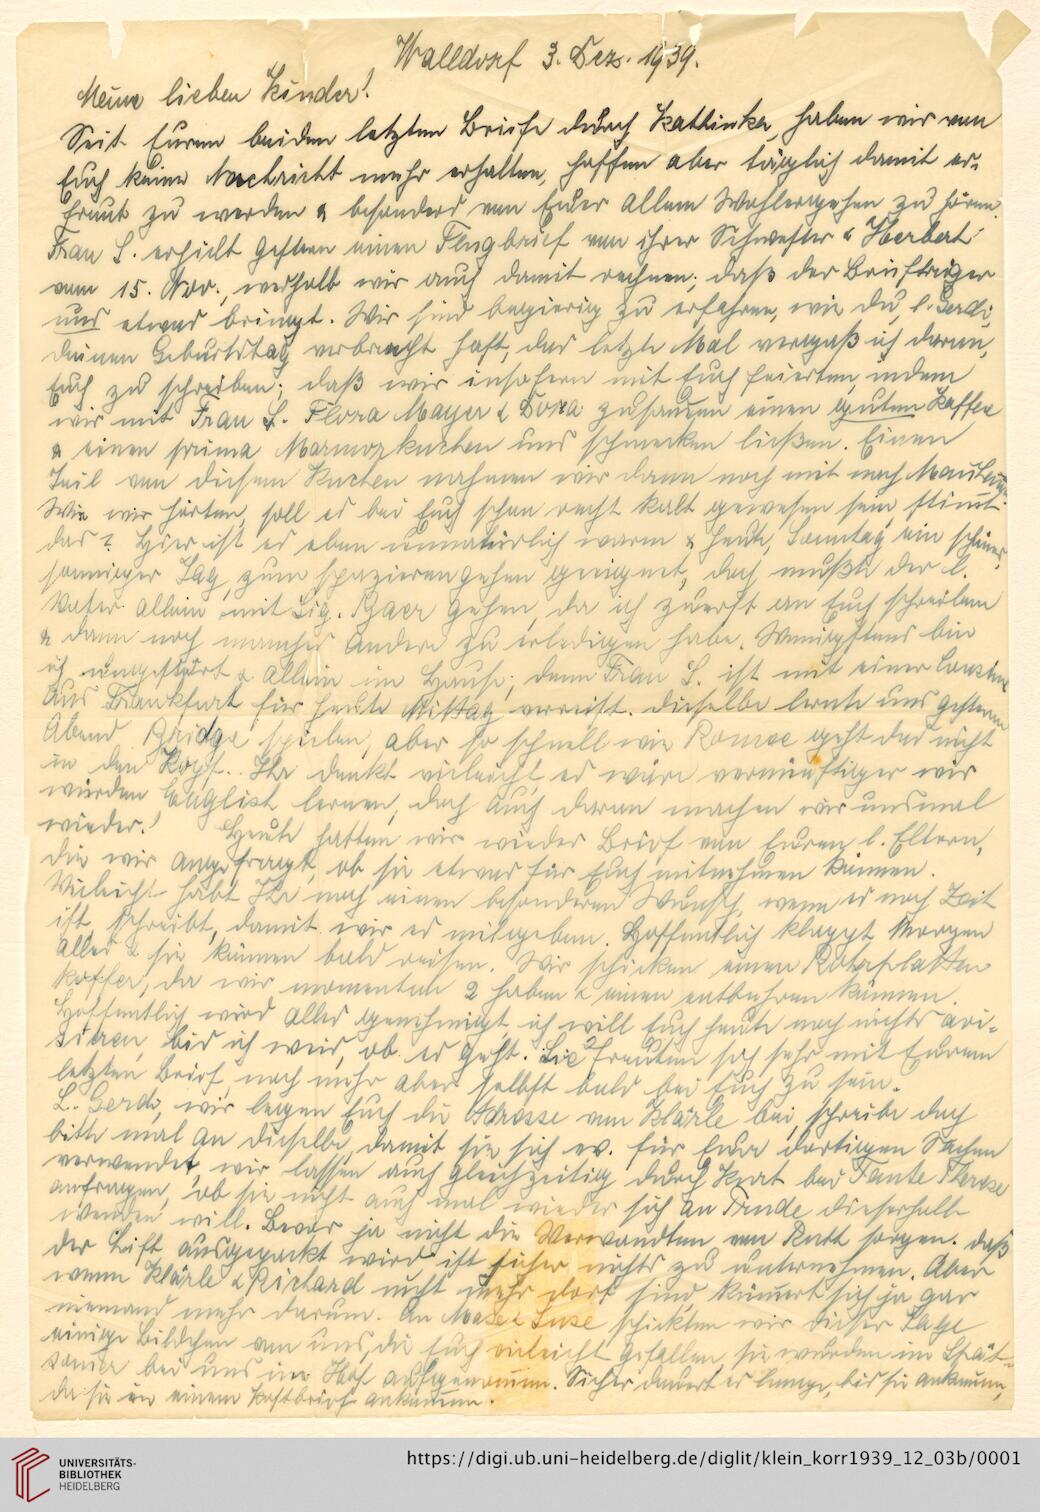 Walldorf 3. Dez. 1939.
Meine lieben Kinder!
Seit Euren beiden letzten Briefe durch Kathinka, haben wir von
Euch keine Nachricht mehr erhalten, hoffen aber täglich damit er-
freut zu werden & besonders von Euer allem Wohlergehen zu hören.
Frau S. erhielt gestern einen Flugbrief von ihrer Schwester & Herbert
vom 15. Nov., weshalb wir auch damit rechnen, daß der Briefträger
uns etwas bringt. Wir sind begierig zu erfahren, wie Du, l. Gerdi,
Deinen Geburtstag verbracht hast, das letzte Mal vergaß ich daran,
Euch zu schreiben; daß wir insofern mit Euch feierten, indem
wir mit Frau S. Flora Mayer & Dora zusammen einen guten Kaffee
& einen prima Marmorkuchen uns schmecken ließen. Einen
Teil von diesem Kuchen nahmen wir dann noch mit nach
Wie wir hörten, soll es bei Euch schon recht kalt gewesen sein, stimmt
das? Hier ist es eben unnatürlich warm & heute, Sonntag ein schöner,
sonniger Tag, zum spazierengehen geeignet, doch mußte der l.
Vater allein mit Sig. Baer gehen, da ich zuerst an Euch schreiben
& dann noch manches Andere zu erledigen habe. Wenigstens bin
ich ungestört & allein im Hause, denn Frau S. ist mit einer Cousine
aus Frankfurt für heute Mittag verreist. Dieselbe lernte uns gestern
Abend Bridge spielen, aber so schnell wie Romee geht das nicht
in den Kopf. Ihr denkt vieleicht, es wäre vernünftiger wir
würden Englisch lernen, doch auch daran machen wir uns mal
wieder! Heute hatten wir wieder Brief von Euren l. Eltern,
die wir angefragt, ob sie etwas für Euch mitnehmen können.
Vieleicht habt Ihr noch einen besonderen Wunsch, wenn es noch Zeit
ist, schreibt, damit wir es mitgeben. Hoffentlich klappt Morgen
alles & sie können bald reisen. Wir schicken einen Rohrplatten
koffer, da wir momentan 2 haben & einen entbehren können.
Hoffentlich wird alles genehmigt, ich will Euch heute noch nichts avi-
sieren, bis ich weis, ob es geht. Sie freuten sich sehr mit Eurem
letzten Brief, noch mehr aber selbst bald bei Euch zu sein.
L. Gerdi, wir legen Euch die Adresse von Klärle bei, schreibe doch
bitte mal an dieselbe, damit sie sich ev. für Eure dortigen Sachen
verwendet, wir lassen auch gleichzeitig durch Kurt bei Tante Therese
anfragen, ob sie nicht auch mal wieder sich an Trude dieserhalb
wenden will. Bevor ja nicht die Verwandten von Rutt sorgen, daß
der Lift ausgepackt wird ist sicher nichts zu unternehmen. Aber
wenn Klärle & Richard nicht mehr dort sind, kümmert sich ja gar
niemand mehr darum. An & Suse schickten wir dieser Tage
einige Bildchen von uns, die Euch vieleicht gefallen, sie wurden im Spät-
somer bei uns im Hof aufgenommen. Sicher dauert es lange, bis sie ankommen,
da sie in einem Postbrief ankommen.
UNIVERSITÄTS-
BIBLIOTHEK
HEIDELBERG
https://digi.ub.uni-heidelberg.de/diglit/klein_korr1939_12_03b/0001